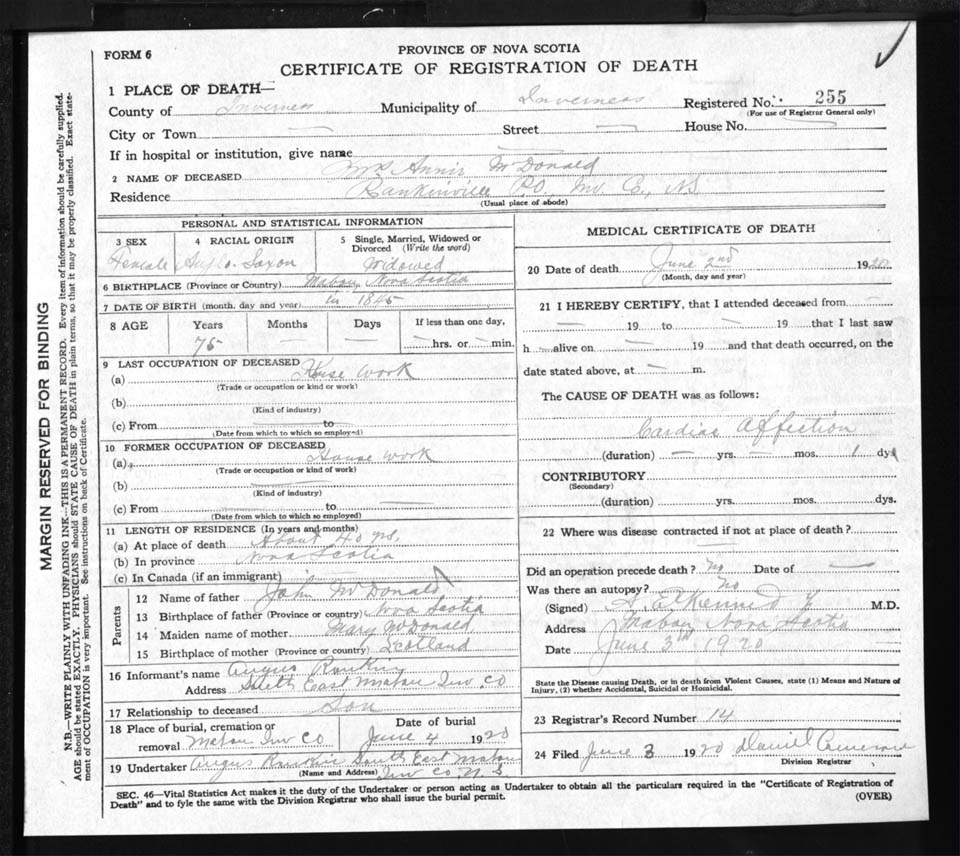 FORM 6
PROVINCE OF NOVA SCOTIA
CERTIFICATE OF REGISTRATION OF DEATH
1 PLACE OF DEATH—
County of Inverness Municipality of Inverness Registered No. 255
(For use of Registrar General only)
City or Town — Street — House No. —
If in hospital or institution, give name —
2 NAME OF DECEASED Mrs Annie McDonald
Residence Rankinville P.O., Inv. C., N.S.
(Usual place of abode)
MARGIN RESERVED FOR BINDING
N.B.—WRITE PLAINLY WITH UNFADING INK—THIS IS A PERMANENT RECORD. Every item of information should be carefully supplied.
AGE should be stated EXACTLY. PHYSICIANS should STATE CAUSE OF DEATH in plain terms, so that it may be properly classified. Exact state-
ment of OCCUPATION is very important. See instructions on back of Certificate.
PERSONAL AND STATISTICAL INFORMATION
3 SEX 4 RACIAL ORIGIN 5 Single, Married, Widowed or
Divorced (Write the word)
Female Anglo-Saxon Widowed
6 BIRTHPLACE (Province or Country) Mabou, Nova Scotia
7 DATE OF BIRTH (month, day and year) in 1845
8 AGE Years Months Days If less than one day,
75 — — — hrs. or — min.
9 LAST OCCUPATION OF DECEASED House Work
(a)
(Trade or occupation or kind or work)
(b)
(Kind of industry)
(c) From — to —
(Date from which to which so employed)
10 FORMER OCCUPATION OF DECEASED
(a) House work
(Trade or occupation or kind of work)
(b) —
(Kind of industry)
(c) From — to —
(Date from which to which so employed)
11 LENGTH OF RESIDENCE (In years and months)
(a) At place of death About 40 yrs.
(b) In province Nova Scotia
(c) In Canada (if an immigrant) —
Parents
12 Name of father John McDonald
13 Birthplace of father (Province or country) Nova Scotia
14 Maiden name of mother Mary McDonald
15 Birthplace of mother (Province or country) Scotland
16 Informant's name Angus Rankin
Address South East Mabou Inv. Co
17 Relationship to deceased Son
18 Place of burial, cremation or Date of burial
removal Mabou Inv Co June 4 1920
19 Undertaker Angus Rankin South East Mabou
(Name and Address) Inv Co. N.S.
MEDICAL CERTIFICATE OF DEATH
20 Date of death June 2nd 1920
(Month, day and year)
21 I HEREBY CERTIFY, that I attended deceased from —
— 19 — to — 19 — that I last saw
h — alive on — 19 — and that death occurred, on the
date stated above, at — m.
The CAUSE OF DEATH was as follows:
Cardiac Affection
(duration) — yrs. — mos. 1 dys
CONTRIBUTORY
(Secondary)
(duration) yrs. mos. dys.
22 Where was disease contracted if not at place of death?
Did an operation precede death? No Date of —
Was there an autopsy? No
(Signed) Kennedy M.D.
Address Mabou Nova Scotia
Date June 3rd 1920
State the Disease causing Death, or in death from Violent Causes, state (1) Means and Nature of
Injury, (2) whether Accidental, Suicidal or Homicidal.
23 Registrar's Record Number 14
24 Filed June 3 1920 Daniel Cameron
Division Registrar
SEC. 46—Vital Statistics Act makes it the duty of the Undertaker or person acting as Undertaker to obtain all the particulars required in the "Certificate of Registration of
Death" and to fyle the same with the Division Registrar who shall issue the burial permit.
(OVER)